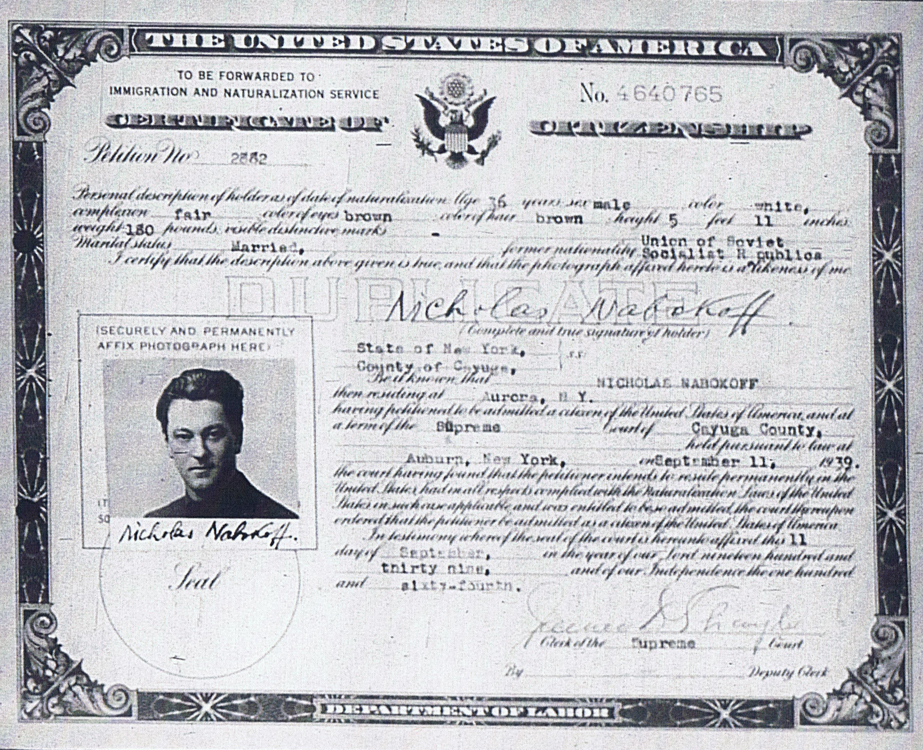 THE UNITED STATES OF AMERICA
TO BE FORWARDED TO
IMMIGRATION AND NATURALIZATION SERVICE
No. 4640765
CERTIFICATE OF CITIZENSHIP
Petition No 2882
Personal description of holder as of date of naturalization Age 36 years, sex male color white,
complexion fair color of eyes brown color of hair brown height 5 feet 11 inches
weight 180 pounds, visible distinctive marks -
Marital status Married, former nationality Union of Soviet
Socialist R publics
I certify that the description above given is true, and that the photograph affixed hereto is a likeness of me
DUPLICATE
Nicholas Nabokoff.
(Complete and true signature of holder)
(SECURELY AND PERMANENTLY
AFFIX PHOTOGRAPH HERE)
Nicholas Nabokoff.
Seal
State of New York, ss:
County of Cayuga,
Be it known, that NICHOLAS NABOKOFF
then residing at Aurora, N Y.
having petitioned to be admitted a citizen of the United States of America, and at
a term of the Supreme Court of Cayuga County,
held pursuant to law at
Auburn, New York, on September 11, 1939.
the court having found that the petitioner intends to reside permanently in the
United States, had in all respects complied with the Naturalization Laws of the United
States in such case applicable, and was entitled to be so admitted, the court thereupon
ordered that the petitioner be admitted as a citizen of the United States of America
In testimony whereof the seal of the court is hereunto affixed this 11
day of September, in the year of our Lord nineteen hundred and
thirty nine, and of our Independence the one hundred
and sixty-fourth.
Clerk of the Supreme Court
By Deputy Clerk
DEPARTMENT OF LABOR